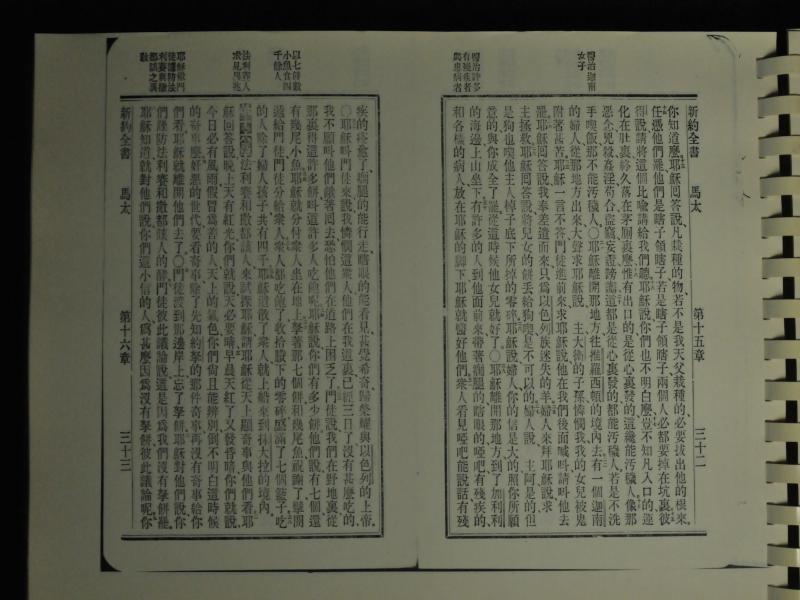 醫治迦南
女子
醫治許多
有殘疾者
與患病者
新約全書 馬太 第十五章 三十二
你知道麼耶穌回答說凡栽種的物若不是我天父栽種的必要拔出他的根來
任憑他們罷他們是瞎子領瞎子若是瞎子領瞎子兩個人必都要掉在坑裏彼
得說請將這個比喻講給我們聽耶穌說你們也不明白麼豈不知凡入口的運
化在肚裏終久落在茅厠裏麼惟有出口的是從心裏發的這纔能汚穢人像那
惡念兇殺姦淫苟合盜竊妄證謗讟這都是從心裏發的都能汚穢人若是不洗
手喫飯那不能汚穢人〇耶穌離開那地方往推羅西頓的境內去有一個迦南
的婦人從那地方出來大聲求耶穌說 主大衛的子孫憐憫我我的女兒被鬼
附著甚苦耶穌一言不答門徒進前來求耶穌說他在我們後面喊叫請叫他去
罷耶穌回答說我奉差遣而來只爲以色列族迷失的羊婦人來拜耶穌說求
主拯救耶穌回答說將兒女的餅丟給狗喫是不可以的婦人說 主阿是的但
是狗也喫他主人棹子底下所掉的零碎耶穌說婦人你的信是大的照你所願
意的與你成全了罷從這時候他女兒就好了〇耶穌離開那地方到了加利利
的海邊上山坐下有許多的人到他面前來帶著瘸腿的瞎眼的啞吧有殘疾的
和各樣的病人放在耶穌的脚下耶穌就醫好他們衆人看見啞吧能說話有殘
以七餅數
小魚食四
千餘人
法利賽人
求見異兆
耶穌敎門
徒謹防法
利賽與撒
都該之敎
疾的痊愈了瘸腿的能行走瞎眼的能看見甚覺希奇歸榮耀與以色列的上帝
〇耶穌叫門徒來說我憐憫這衆人他們在我這裏已經三日了沒有甚麼吃的
我不願叫他們餓著回去恐怕他們在道路上困乏了門徒說我們在野地裏從
那裏得這許多餅叫這許多人吃飽呢耶穌說你們有多少餅他們說有七個還
有幾尾小魚耶穌就分付衆人坐在地上拏著那七個餅和幾尾魚祝謝了擘開
遞給門徒門徒分給衆人衆人都吃飽了收拾賸下的零碎盛滿了七個籃子吃
的人除了婦人孩子共有四千耶穌遣散了衆人就上船來到抹大拉的境內
法利賽和撒都該人來試探耶穌請耶穌從天上顯奇事與他們看耶
穌回答說晚上天有紅光你們就說天必要晴早晨天紅了又發昏暗你們就說
今日必有風雨假冒爲善的人天上的氣色你們尚且能辨別倒不明白這時候
的奇事麼奸惡的世代要看奇事除了先知約拏的那件奇事再沒有奇事給你
們看耶穌就離開他們去了〇門徒渡到那邊岸上忘了拏餅耶穌對他們說你
們謹防法利賽和撒都該人的酵門徒彼此議論說這是因爲我們沒有拏餅罷
耶穌知道就對他們說你們這小信的人爲甚麼因爲沒有拏餅彼此議論呢你
新約全書 馬太 第十六章 三十三